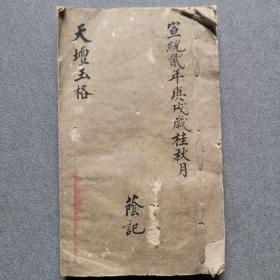 宣統貳年庚戌歲桂秋月
天壇玉格
蔭記